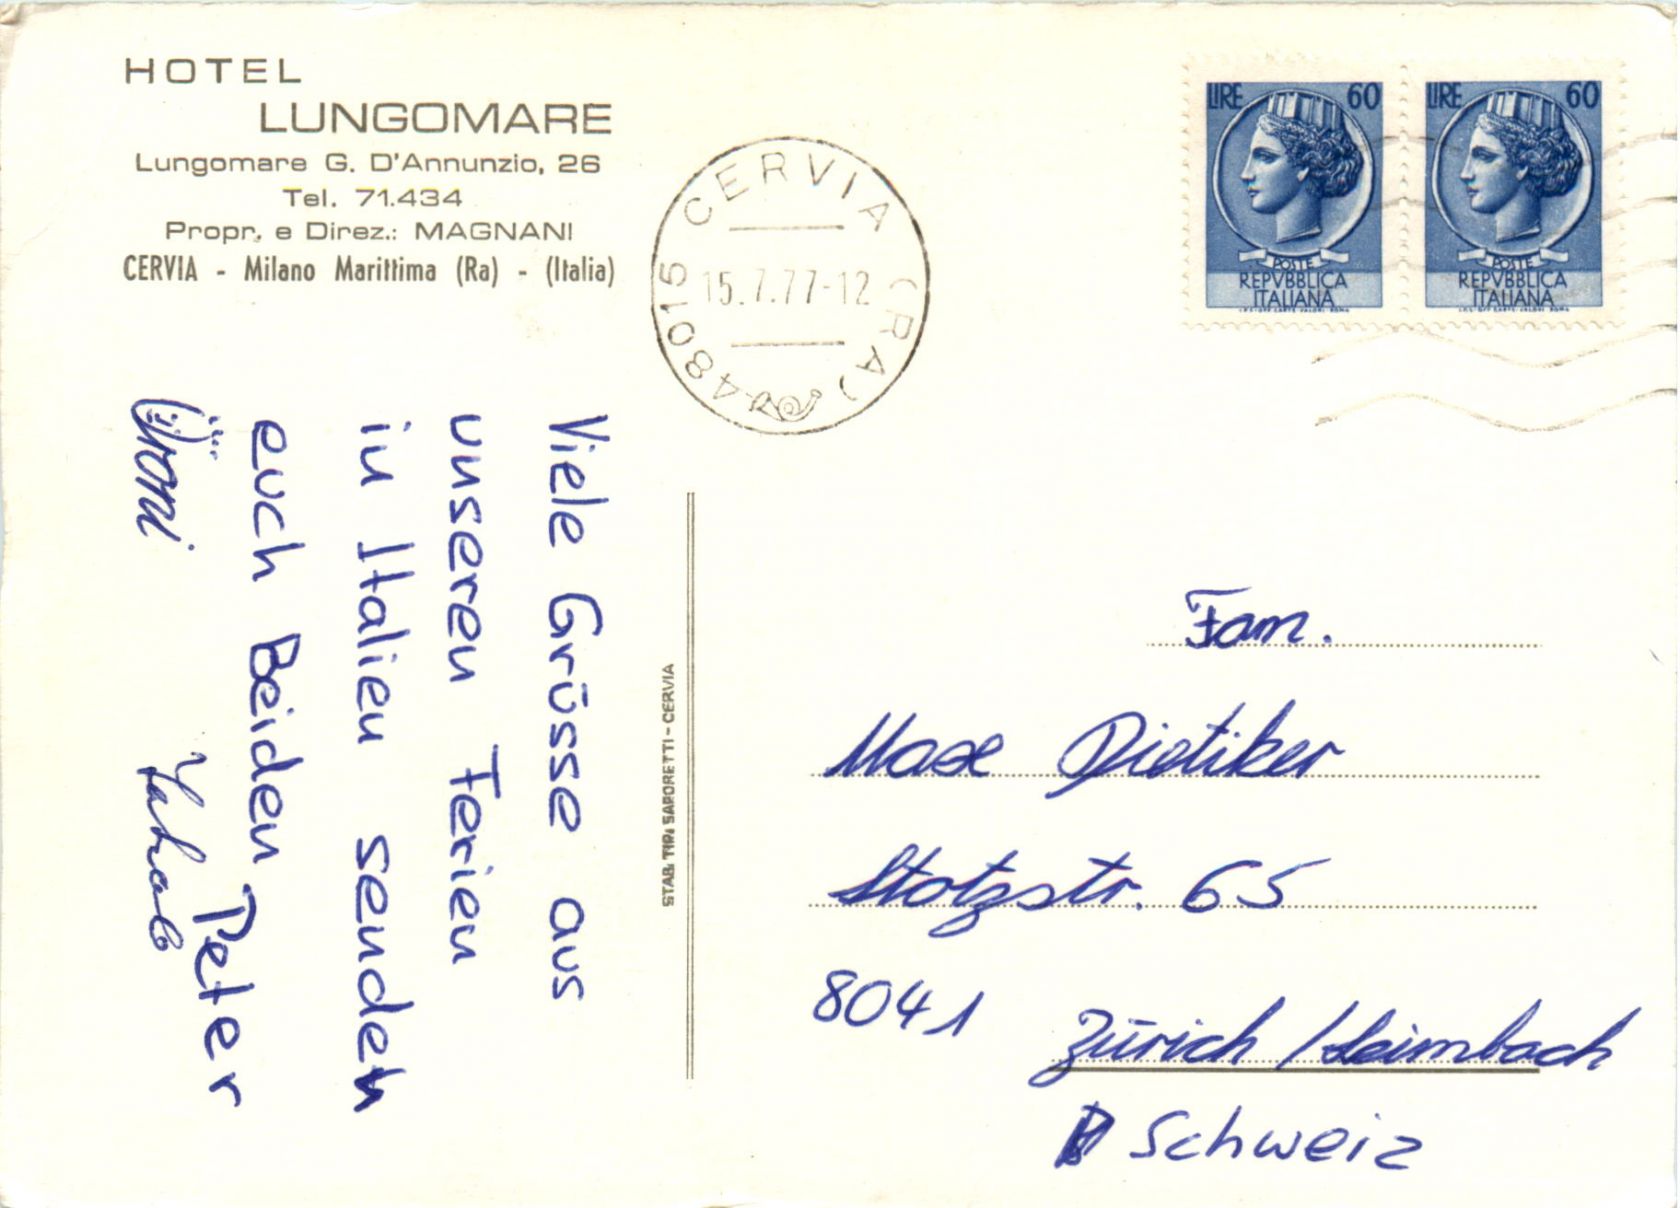 HOTEL
LUNGOMARE
Lungomare G. D'Annunzio, 26
Tel. 71.434
Propr. e Direz.: MAGNANI
CERVIA - Milano Marittima (Ra) - (Italia)
48015 CERVIA (RA)
15.7.77-12
LIRE 60
POSTE
REPVBBLICA
ITALIANA
I.P.S-OFF. CARTE-VALORI-ROMA
LIRE 60
POSTE
REPVBBLICA
ITALIANA
I.P.S-OFF. CARTE-VALORI-ROMA
Viele Grüsse aus
unseren Ferien
in Italien senden
euch Beiden Peter
STAB. TIP. SAPORETTI - CERVIA
Fam.
Max Dietiker
Stotzstr. 65
8041 Zürich / Leimbach
Schweiz